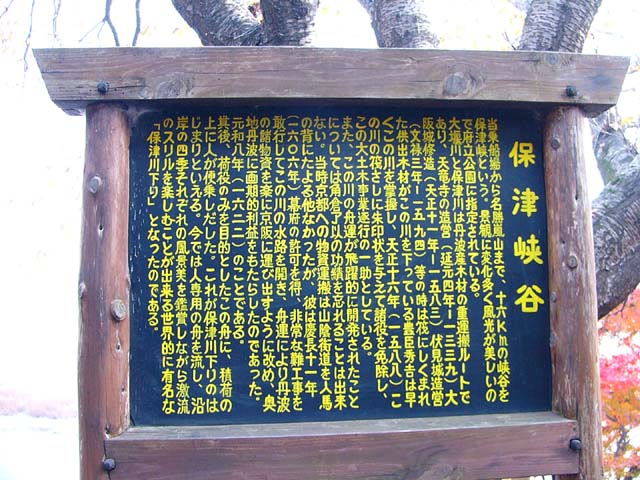 保津峡谷
当乗船場から名勝嵐山まで、十六Kmの峡谷を
保津峡という。景観に変化多く風光が美しいの
で府立公園に指定されている。
大堰川と保津川は丹波産木材の重運搬ルートで
あり、天竜寺の造営(延元四年ー一三三九)大
阪城修造(天正十一年ー一五八三)伏見城造営
(文禄三年ー一五九四)等の時は筏にしくまれ
た供出木材がこの川を下っている豊臣秀吉は早
くこの川を掌握し、天正十六年(一五八八)こ
の川の筏さしに朱印状を与えて諸役を免除し、
この大土木事業遂行の一助としている。
また、この川の舟運が飛躍的に開発されたこと
については角倉了以の功績を忘れることは出来
ない。当時京都への物資運搬は山陰街道を人馬
の背による他なかったが、彼は慶長十一年
(一六〇六年)幕府の許可を得、非常な難工事を
敢行してこの川の水路を開き、舟運により丹波
の諸物資を楽に京阪に運び出すように改め、奥
地丹波に画期的利益をもたらしたのであった。
元和八年(一六二二)のことである。
其後、荷役のみを目的としたこの舟に、積荷の
上に人が便乗しだした。これが保津川下りのは
じまりといえる。今では人専用の舟を流し、沿
岸の四季それぞれの風景美を鑑賞しながら激流
のスリルを楽しむことが出来る世界的に有名な
「保津川下り」となったのである。